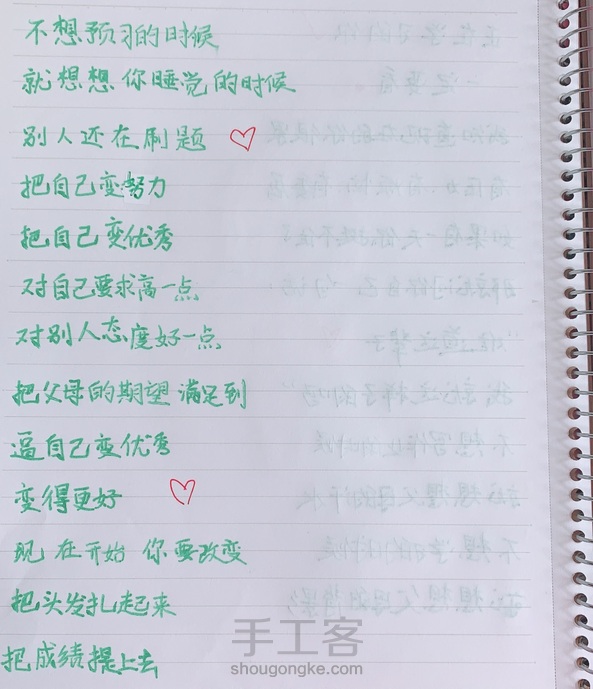 不想预习的时候
就想想你睡觉的时候
别人还在刷题
把自己变努力
把自己变优秀
对自己要求高一点
对别人态度好一点
把父母的期望满足到
逼自己变优秀
变得更好
现在开始 你要改变
把头发扎起来
把成绩提上去
手工客
shougongke.com